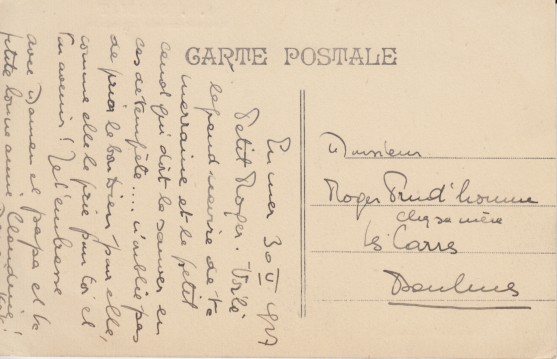 CARTE POSTALE
En mer 30 VI 1927
Petit Roger. Voilà
le grand navire de ta
marraine et le petit
canot qui doit la sauver en
cas de tempête.... n'oublie pas
de prier le bon Dieu pour elle,
comme elle le prie pour toi et
l'avenir! Je t'embrasse
avec Maman et papa et ta
petite bonne amie Claudine!
Monsieur
Roger Prud'homme
chez sa mère
Les Carrs